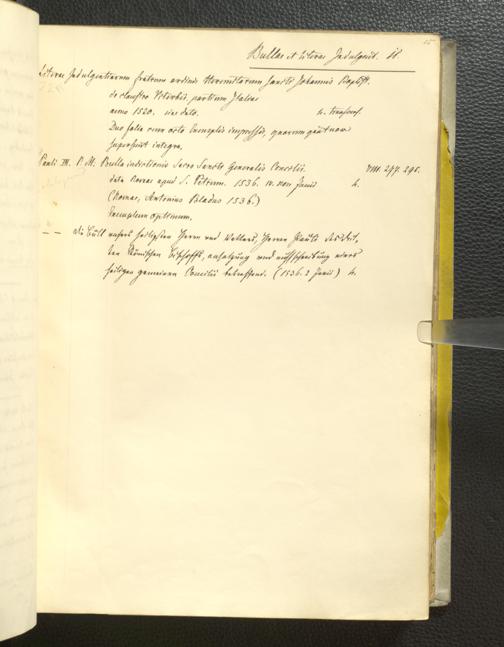 15
Bullae et Literae Indulgent. 11.
Literae Indulgentiarum fratrum ordinis Heremitarum Sancti Johannis Baptist.
de claustro Viterbii, partium Italiae
anno 1520. sine dato. 4.
Duo folia cum octo Exemplis impressis, quorum
supersunt integra.
Pauli III. P. M. Bulla indictionis Sacro Sancti Generalis Concilii. VIII. 297. 295.
data Romae apud S. Petrum. 1536. IV. non Junii 4.
(Romae, Antonius Bladus 1536.)
Exemplum optimum.
— — die Bull unsers heiligsten Herrn und Vatters, Herrn Pauls des drit,
ten Römischen Bischoffs, ansatzung und außschreibung eines
heiligen gemeinen Concilii betreffend. (1536. 2 Junii) 4.